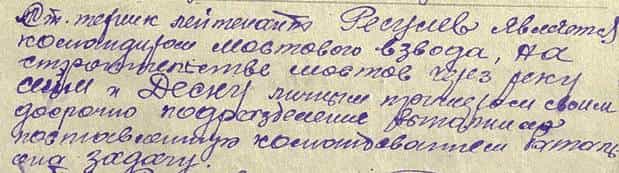 Ст. техник лейтенант Ресулев является
командиром мостового взвода, на
строительстве мостов через реку
Сейм и Десну личным примером своим
досрочно подразделение выполнило
поставленную командованием баталь
она задачу.